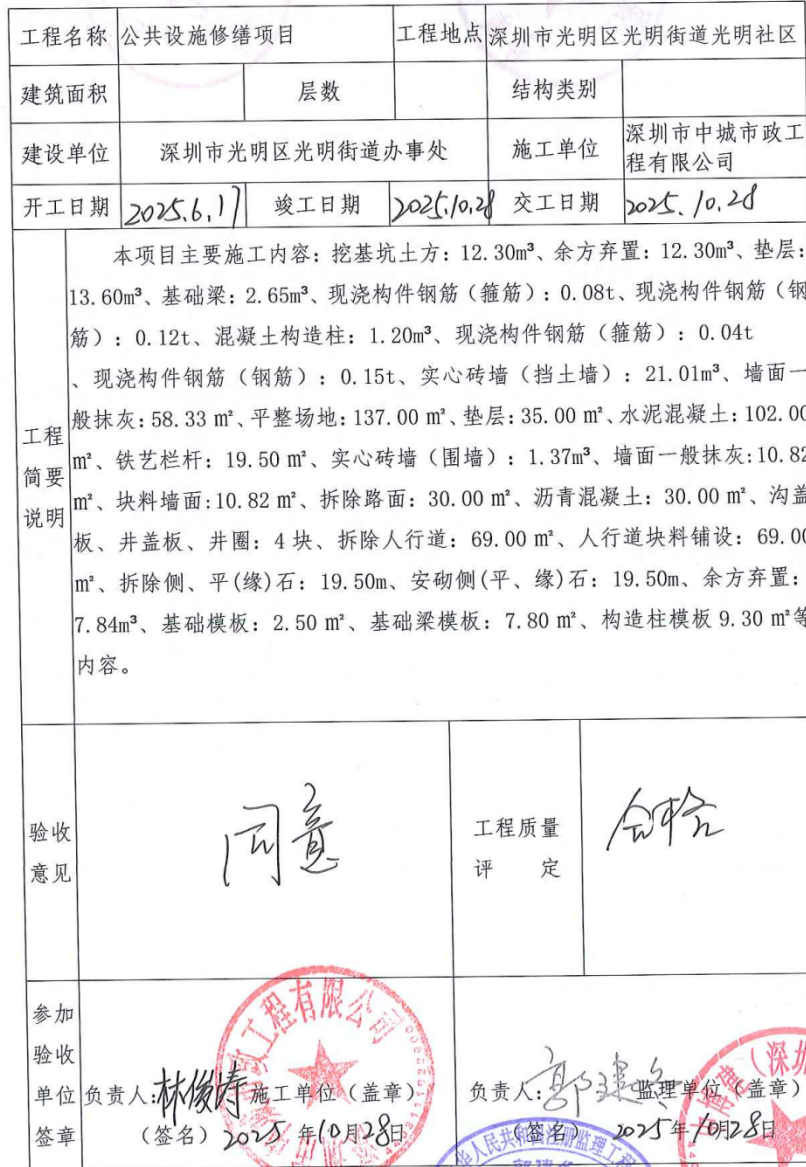 工程名称 公共设施修缮项目 工程地点 深圳市光明区光明街道光明社区
建筑面积 层数 结构类别
建设单位 深圳市光明区光明街道办事处 施工单位 深圳市中城市政工程有限公司
开工日期 2025.6.17 竣工日期 2025.10.28 交工日期 2025.10.28
工程简要说明
本项目主要施工内容：挖基坑土方：12.30m³、余方弃置：12.30m³、垫层：
13.60m³、基础梁：2.65m³、现浇构件钢筋（箍筋）：0.08t、现浇构件钢筋（钢
筋）：0.12t、混凝土构造柱：1.20m³、现浇构件钢筋（箍筋）：0.04t
、现浇构件钢筋（钢筋）：0.15t、实心砖墙（挡土墙）：21.01m³、墙面一
般抹灰：58.33 m²、平整场地：137.00 m²、垫层：35.00 m²、水泥混凝土：102.00
m²、铁艺栏杆：19.50 m²、实心砖墙（围墙）：1.37m³、墙面一般抹灰：10.82
m²、块料墙面：10.82 m²、拆除路面：30.00 m²、沥青混凝土：30.00 m²、沟盖
板、井盖板、井圈：4 块、拆除人行道：69.00 m²、人行道块料铺设：69.00
m²、拆除侧、平(缘)石：19.50m、安砌侧(平、缘)石：19.50m、余方弃置：
7.84m³、基础模板：2.50 m²、基础梁模板：7.80 m²、构造柱模板 9.30 m²等
内容。
验收意见 同意 工程质量评 定 合格
参加验收单位签章
负责人：林俊涛 施工单位（盖章）
（签名） 2025 年10月28日
政工程有限公司
负责人：郭建 监理单位（盖章）
（签名） 2025年10月28日
（深圳
华人民共和国注册监理工程